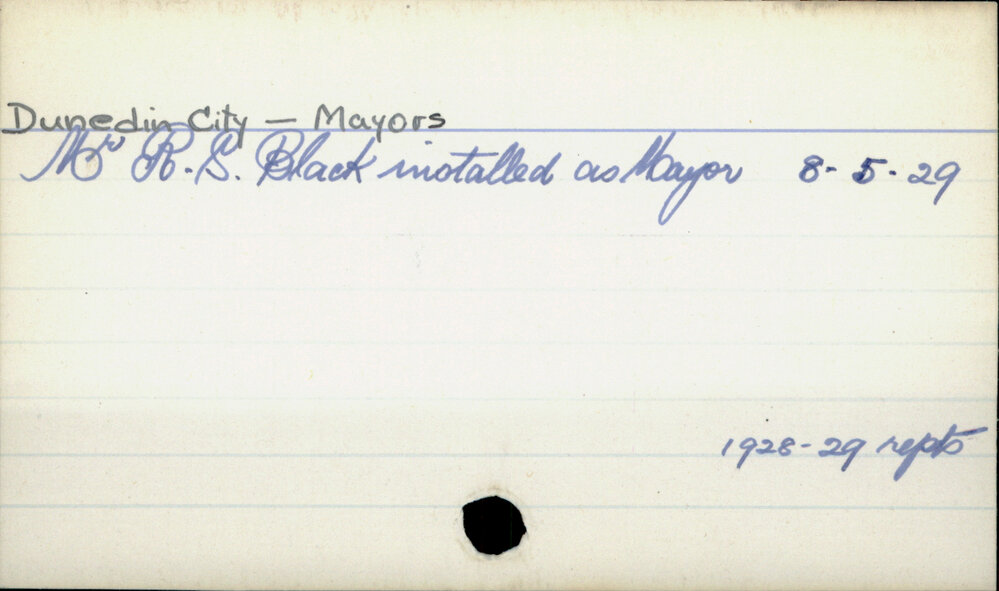 Dunedin City — Mayors
Mr R. S. Black installed as Mayor 8-5-29
1928-29 repts